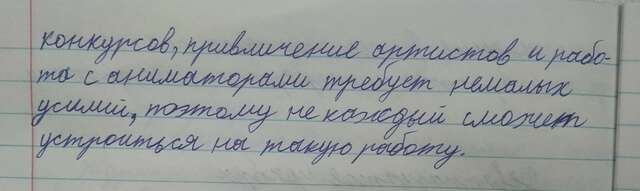 конкурсов, привличение артистов и рабо-
та с аниматорами требует немалых
усилий, поэтому не каждый сможет
устроиться на такую работу.